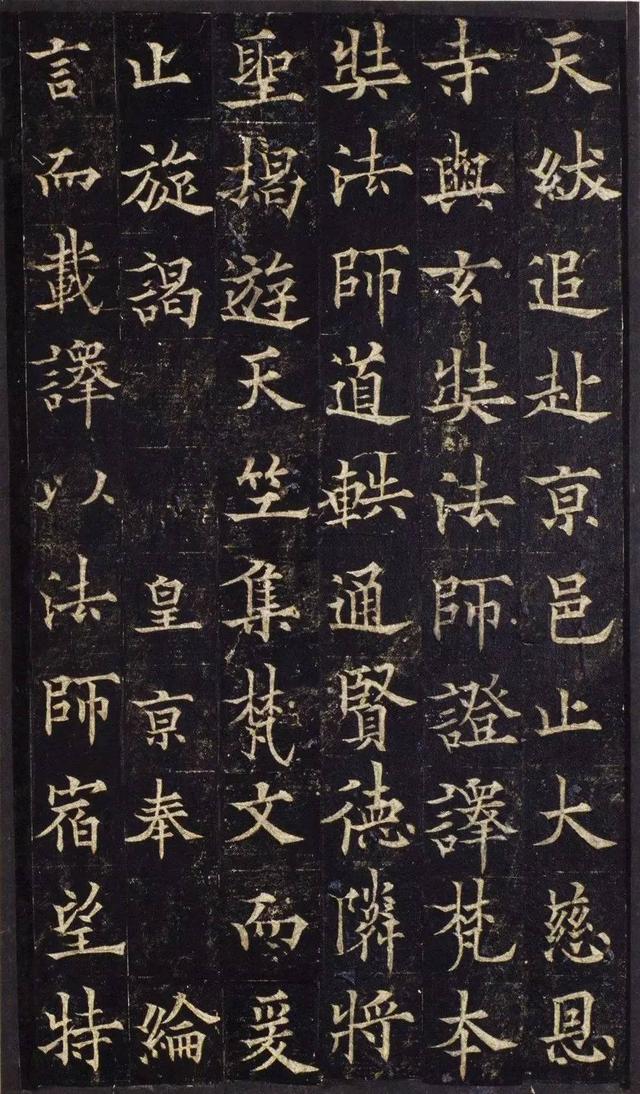 天紱追赴亰邑止大慈恩
寺與玄奘法師證譯梵本
奘法師道軼通賢徳隣將
聖揭遊天竺集梵文而爰
止旋謁 皇亰奉 綸
言而載譯以法師宿望特